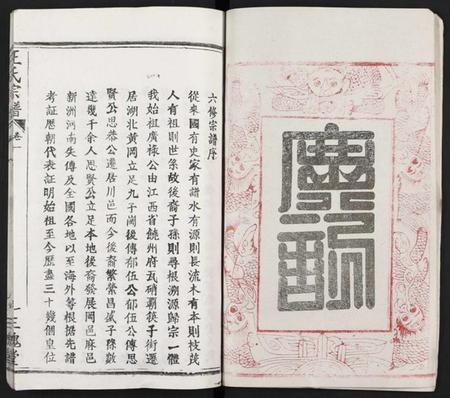 六修宗譜序
從來國有史家有譜水有源則長流木有本則枝茂
人有祖則世系故後裔子孫則尋根溯源歸宗一體
我始祖廣祿公由江西省饒州府瓦硝霸筷子街遷
居湖北黄岡立足九子崗後傳郁伍公郁伍公傳思
賢公思恭公遷居川邑而今後裔繁榮昌盛子孫數
達幾千余人思賢公立足本地後裔發展岡邑麻邑
新洲河南失傳及全國各地以至海外等根據先譜
考証歷朝代表証明始祖至今歷盡三十幾個皇位
汪氏宗譜
卷一